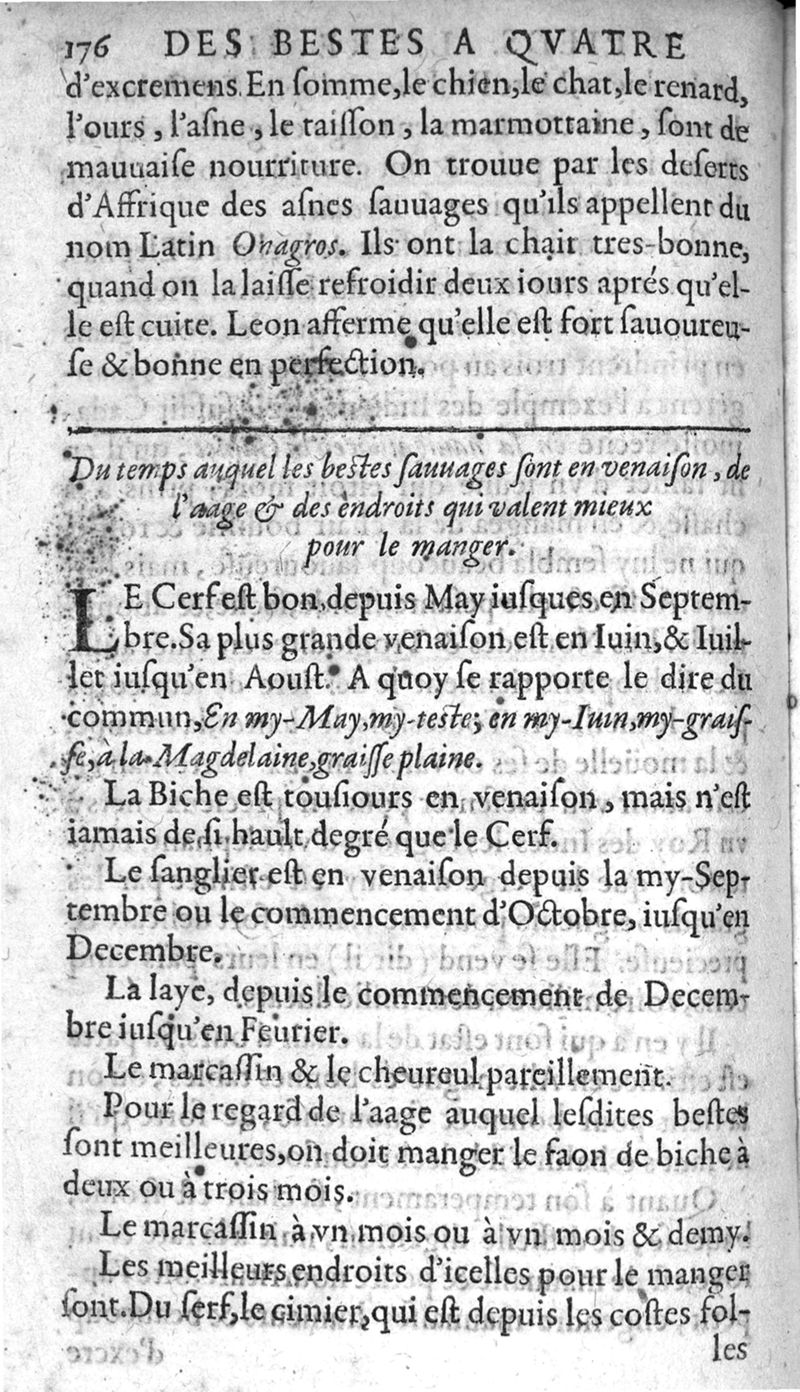 176 DES BESTES A QVATRE
d'excremens. En ſomme, le chien, le chat, le renard,
l'ours, l'aſne, le taiſſon, la marmottaine, ſont de
mauuaiſe nourriture. On trouue par les deſerts
d'Affrique des aſnes ſauuages qu'ils appellent du
nom Latin Onagros. Ils ont la chair tres-bonne,
quand on la laiſſe refroidir deux iours aprés qu'el-
le eſt cuite. Leon afferme qu'elle eſt fort ſauoureu-
ſe & bonne en perfection.
Du temps auquel les beſtes ſauuages ſont en venaiſon, de
l'aage & des endroits qui valent mieux
pour le manger.
LE Cerf eſt bon, depuis May iuſques en Septem-
bre. Sa plus grande venaiſon eſt en Iuin, & Iuil-
let iuſqu'en Aouſt. A quoy ſe rapporte le dire du
commun, En my-May, my-teſte; en my-Iuin, my-graiſ-
ſe, à la Magdelaine, graiſſe plaine.
La Biche eſt touſiours en venaiſon, mais n'eſt
iamais de ſi hault degré que le Cerf.
Le ſanglier eſt en venaiſon depuis la my-Sep-
tembre ou le commencement d'Octobre, iuſqu'en
Decembre.
La laye, depuis le commencement de Decem-
bre iuſqu'en Feurier.
Le marcaſſin & le cheureul pareillement.
Pour le regard de l'aage auquel leſdites beſtes
ſont meilleures, on doit manger le faon de biche à
deux ou à trois mois.
Le marcaſſin à vn mois ou à vn mois & demy.
Les meilleurs endroits d'icelles pour le manger
ſont. Du ſerf, le cimier, qui eſt depuis les coſtes fol-
les